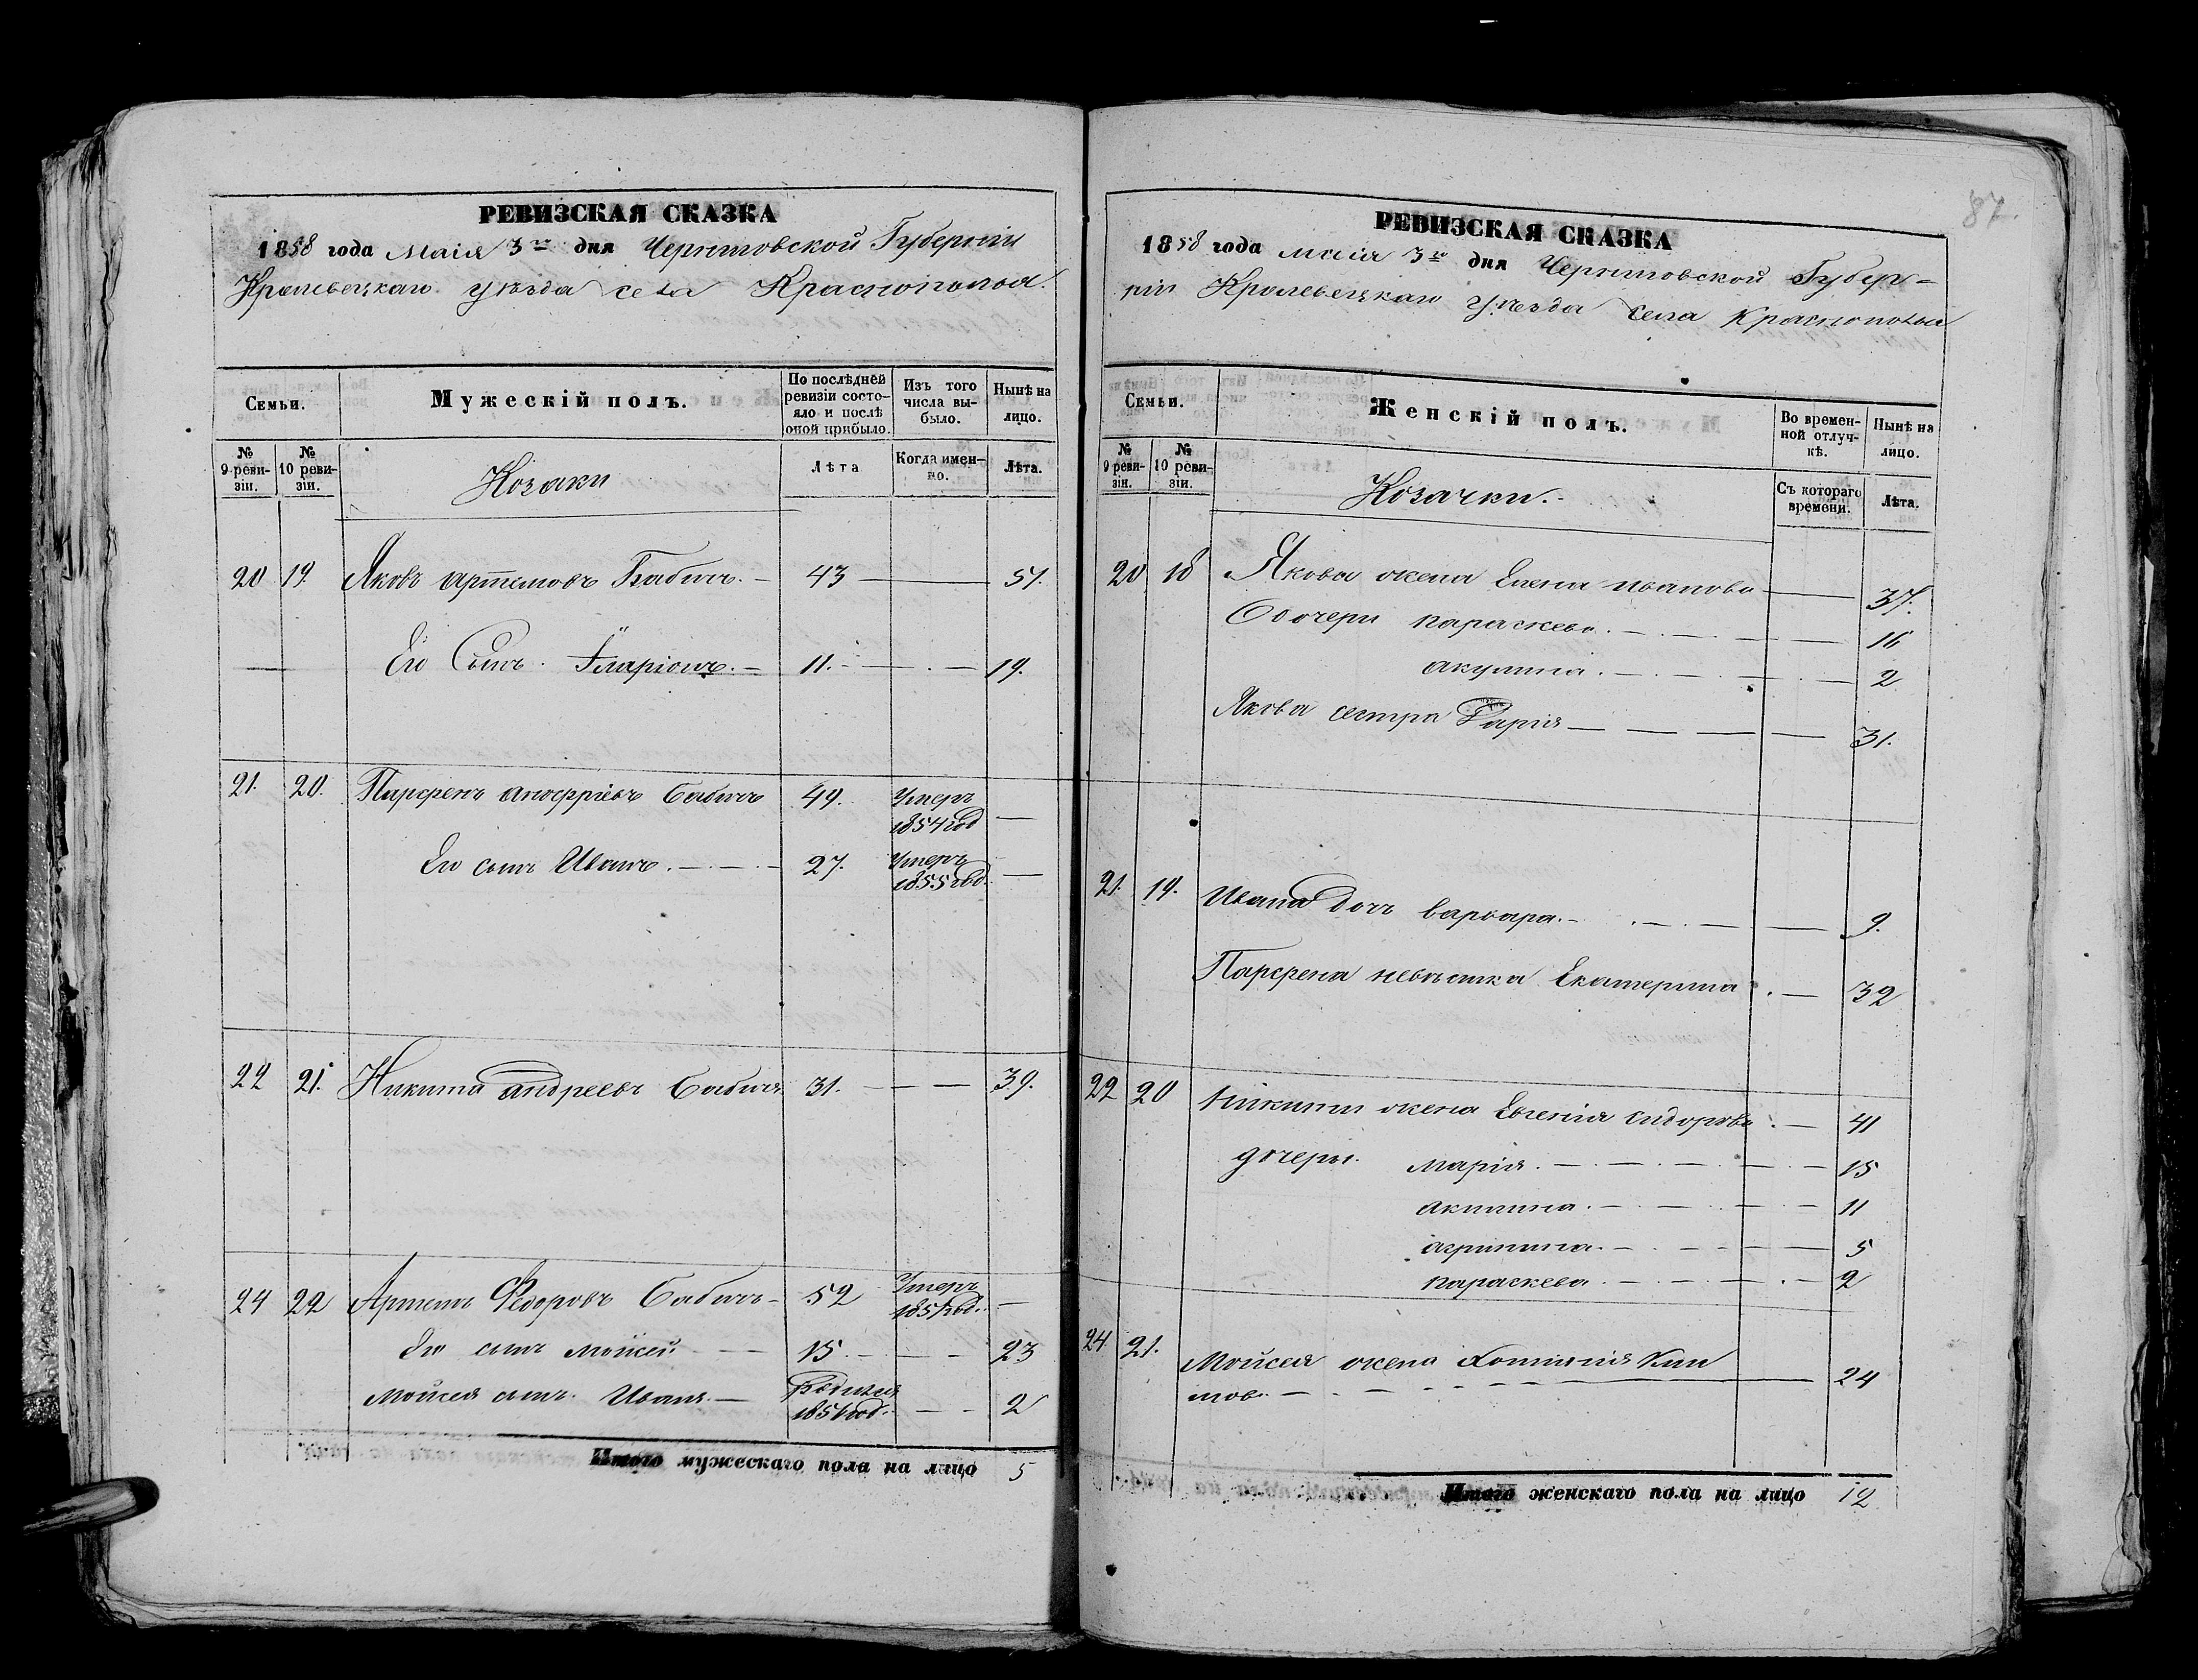 РЕВИЗСКАЯ СКАЗКА
1858 года Маія 3го дня Черниговской Губерніи
Кролевецкаго уѣзда села Краснополья.
Семьи.
Мужескій полъ.
По послѣдней ревизіи состояло и послѣ оной прибыло.
Изъ того числа выбыло.
Нынѣ на лицо.
№ 9 ревизіи.
№ 10 ревизіи.
Козаки
Лѣта
Когда именно.
Лѣта.
20 19. Яковъ Артемовъ Бабичъ. 43 51.
Его Сынъ. Іларіонъ. 11. 19.
21. 20. Парфенъ Бабичъ 49. Умеръ 1854 год
Его сынъ Иванъ. 27. Умеръ 1855 год.
22 21. Никита Андреевъ Бабичъ 31. 39.
24 22 Артемъ Федоровъ Бабичъ 52 Умеръ
Его сынъ Мойсей 15. 23
Мойсея сынъ. Иванъ. 2
Итого мужескаго пола на лицо 5
87.
РЕВИЗСКАЯ СКАЗКА
1858 года маія 3го дня Черниговской Губер-
ніи Кролевецкаго уѣзда села Краснополья
Семьи.
Женскій полъ.
Во временной отлучкѣ.
Нынѣ на лицо.
№ 9 ревизіи.
№ 10 ревизіи.
Козачки.
Съ котораго времени.
Лѣта.
20 18 Якова жена Елена Иванова 37.
дочери Параскева. 16
Акулина. 2
Якова сестра 31.
21. 19. Ивана дочь Варвара. 9.
Парфена невѣстка Екатерина. 32
22 20 Никиты жена Евгенія Сидорова. 41
дочеры. Марія. 15
Акилина. 11
Агрипина. 5
Параскева. 2
24. 21. Мойсея жена 24
Итого женскаго пола на лицо 12